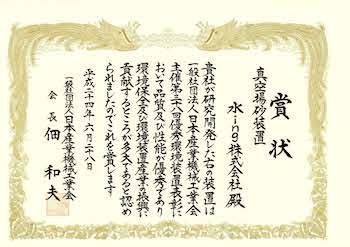 賞状
真空揚砂装置
水ing株式会社殿
貴社が研究開発した右の装置は
一般社団法人日本産業機械工業会
主催第三十八回優秀環境装置表彰に
おいて品質及び性能が優秀であり
環境保全及び環境装置産業の振興に
貢献するところが多大であると認め
られましたのでこれを賞します
平成二十四年六月二十八日
一般社団法人日本産業機械工業会
会長 佃 和夫